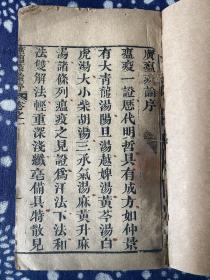 廣瘟疫論序
瘟疫一證歷代明哲具有成方如仲景
有大青龍湯陽旦湯越婢湯黃芩湯白
虎湯大小柴胡湯三承氣湯麻黃升麻
湯諸條列瘟疫之見證為汗法下法和
法雙解法輕重深淺纖毫備具特散見